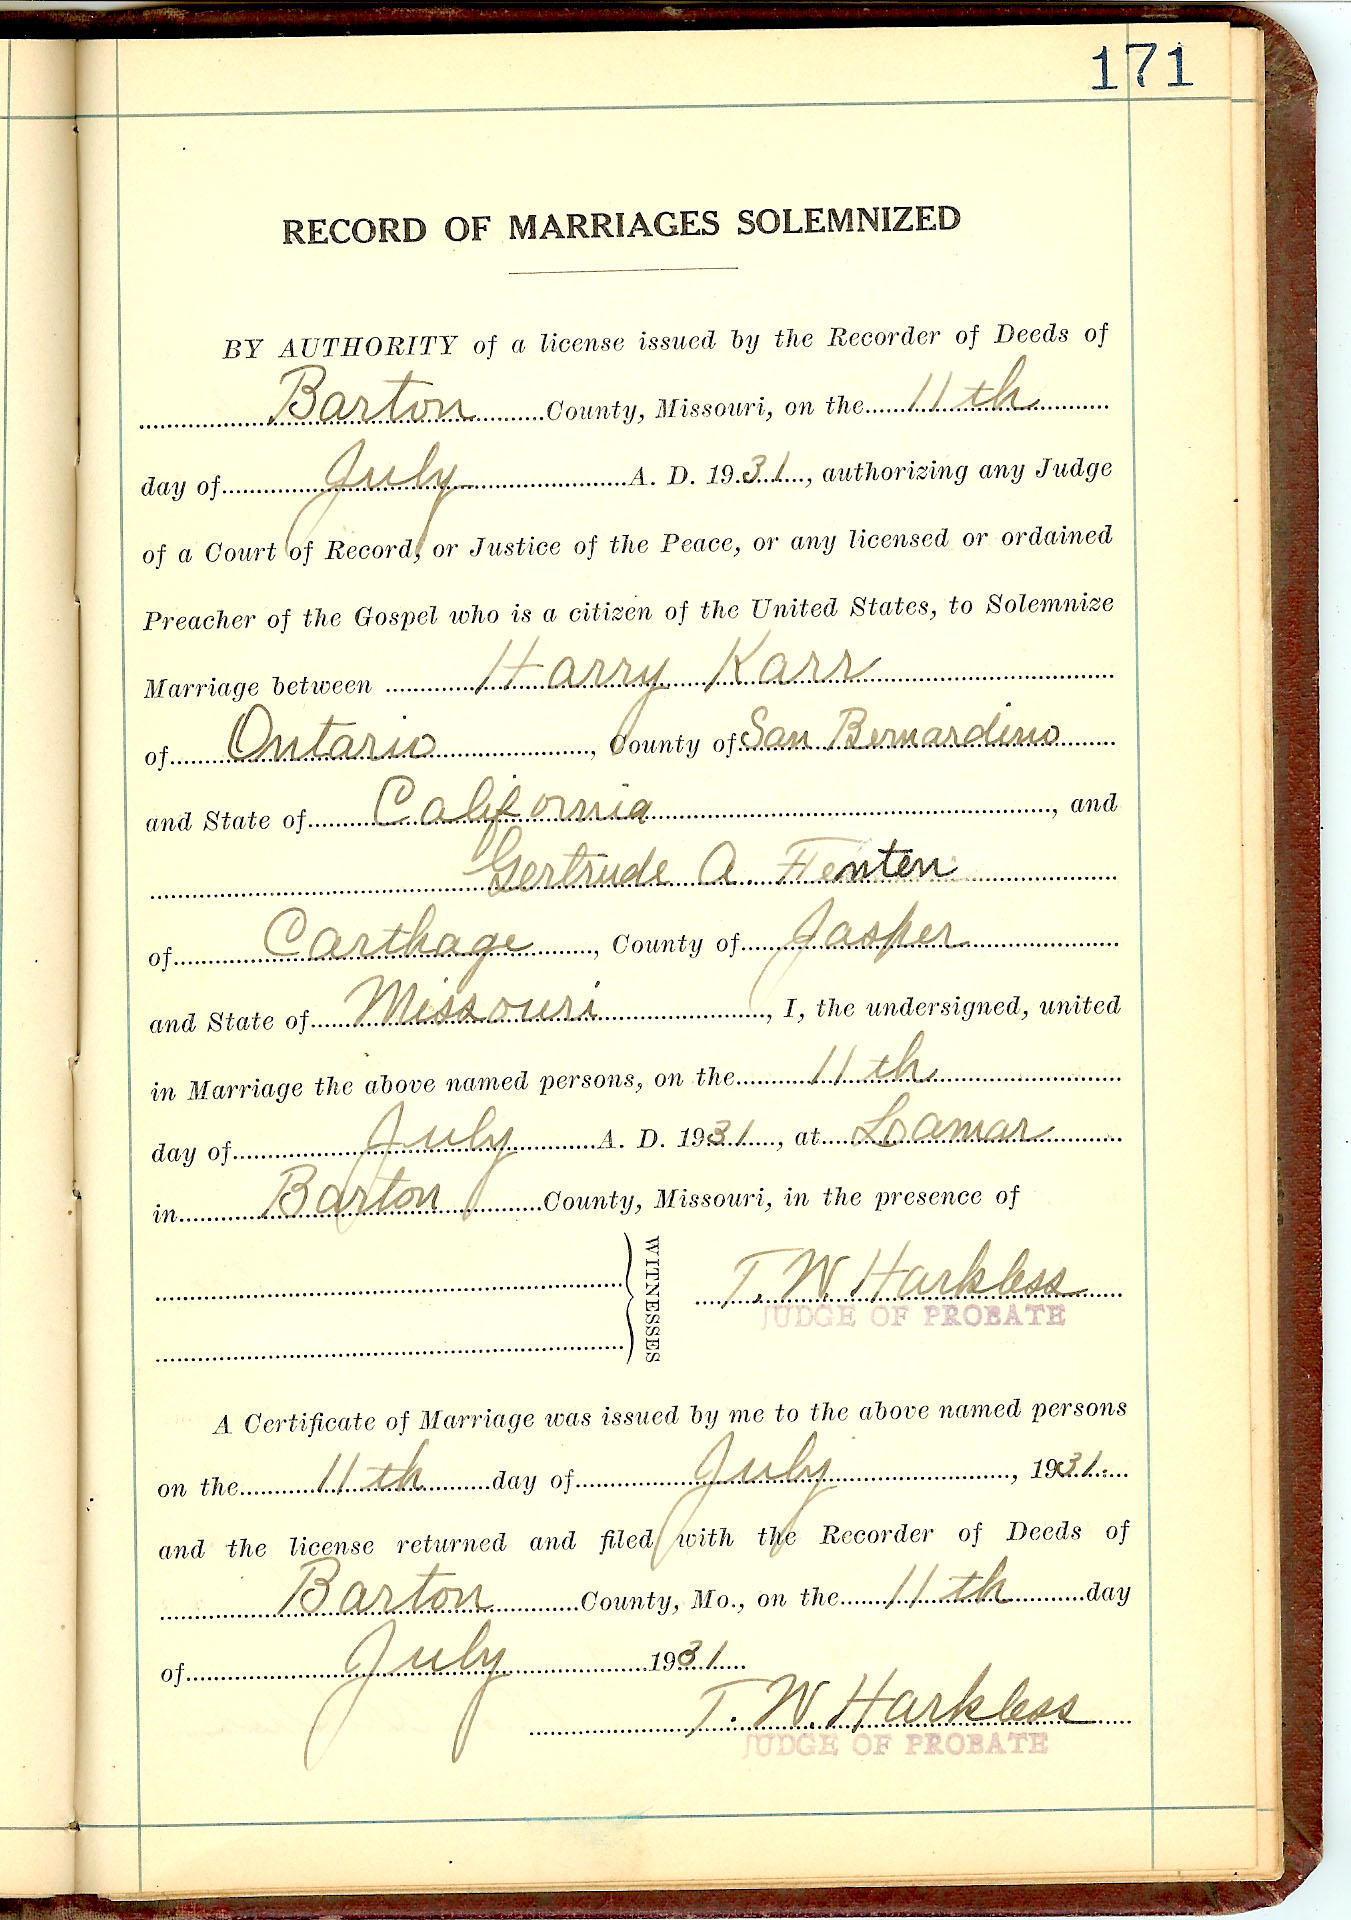 171
RECORD OF MARRIAGES SOLEMNIZED
BY AUTHORITY of a license issued by the Recorder of Deeds of
Barton County, Missouri, on the 11th
day of July A. D. 1931, authorizing any Judge
of a Court of Record, or Justice of the Peace, or any licensed or ordained
Preacher of the Gospel who is a citizen of the United States, to Solemnize
Marriage between Harry Karr
of Ontario, County of San Bernardino
and State of California, and
Gertrude A. Fenten
of Carthage, County of Jasper
and State of Missouri, I, the undersigned, united
in Marriage the above named persons, on the 11th
day of July A. D. 1931, at Lamar
in Barton County, Missouri, in the presence of
T. W. Harkless
JUDGE OF PROBATE
WITNESSES
A Certificate of Marriage was issued by me to the above named persons
on the 11th day of July, 1931.
and the license returned and filed with the Recorder of Deeds of
Barton County, Mo., on the 11th day
of July 1931
T. W. Harkless
JUDGE OF PROBATE